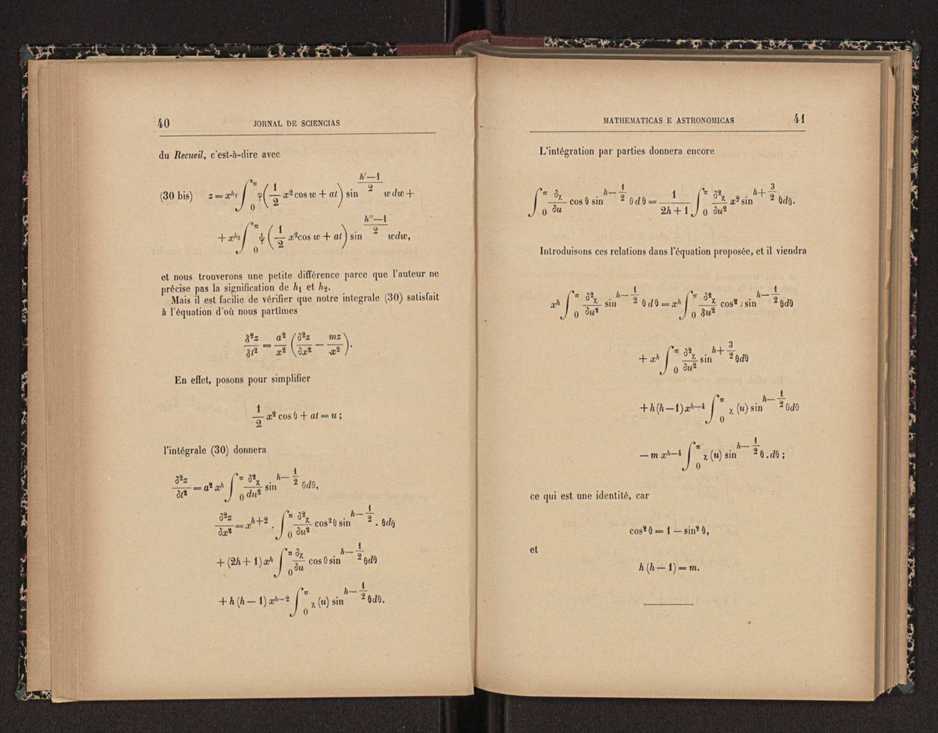 40 JORNAL DE SCIENCIAS
du Recueil, c'est-à-dire avec
(30 bis) z = x^{h_1} ∫_0^π φ(1/2 x² cos w + at) sin^{(h'—1)/2} w dw +
+ x^{h_2} ∫_0^π ψ(1/2 x² cos w + at) sin^{(h''—1)/2} w dw,
et nous trouverons une petite différence parce que l'auteur ne
précise pas la signification de h₁ et h₂.
Mais il est facilie de vérifier que notre integrale (30) satisfait
à l'équation d'où nous partîmes
∂²z/∂t² = a²/x² (∂²z/∂x² — mz/x²).
En effet, posons pour simplifier
1/2 x² cos θ + at = u ;
l'intégrale (30) donnera
∂²z/∂t² = a² x^h ∫_0^π ∂²χ/du² sin^{h—1/2} θdθ,
∂²z/∂x² = x^{h+2} . ∫_0^π ∂²χ/∂u² cos² θ sin^{h—1/2} . θdθ
+ (2h + 1) x^h ∫_0^π ∂χ/∂u cos θ sin^{h—1/2} θdθ
+ h (h — 1) x^{h—2} ∫_0^π χ (u) sin^{h—1/2} θdθ.
MATHEMATICAS E ASTRONOMICAS 41
L'intégration par parties donnera encore
∫_0^π ∂χ/∂u cos θ sin^{h—1/2} θ d θ = 1/(2h + 1) ∫_0^π ∂²χ/∂u² x² sin^{h+3/2} θdθ.
Introduisons ces relations dans l'équation proposée, et il viendra
x^h ∫_0^π ∂²χ/∂u² sin^{h—1/2} θ d θ = x^h ∫_0^π ∂²χ/∂u² cos² : sin^{h—1/2} θdθ
+ x^h ∫_0^π ∂²χ/∂u² sin^{h+3/2} θdθ
+ h (h—1) x^{h—4} ∫_0^π χ (u) sin^{h—1/2} θdθ
— m x^{h—4} ∫_0^π χ (u) sin^{h—1/2} θ . dθ ;
ce qui est une identité, car
cos² θ = 1 — sin² θ,
et
h (h — 1) = m.